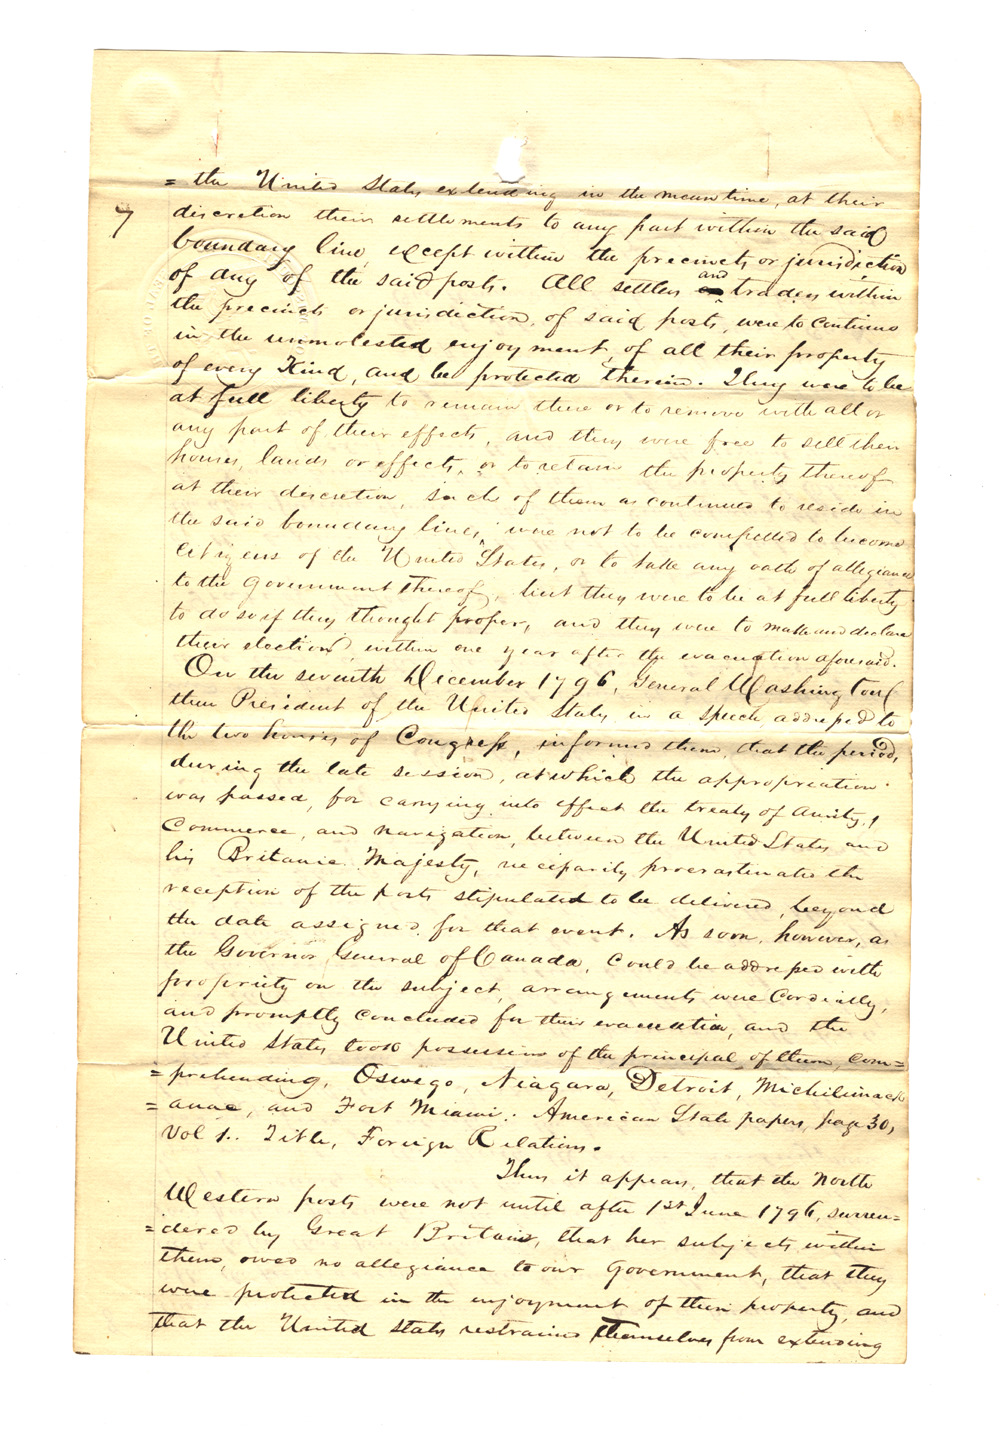 = the United States extending in the mean time, at their
7
discretion their settlements to any part within the said
boundary line, except within the precincts or jurisdiction
of any of the said posts. All settlers and traders within
the precincts or jurisdiction, of said posts, were to continue
in the unmolested enjoyment, of all their property
of every Kind, and be protected therein. They were to be
at full liberty to remain there or to remove with all or
any part of their effects, and they were free to sell their
houses, lands or effects, or to retain the property thereof
at their discretion, such of them as continued to reside in
the said boundary lines, were not to be compelled to become
citizens of the United States, or to take any oath of allegiance
to the Government thereof, but they were to be at full liberty
to do so if they thought proper, and they were to make and declare
their election within one year after the evacuation aforesaid.
On the seventh December 1796, General Washington
then President of the United States, in a speech addressed to
the two houses of Congress, informed them, that the period,
during the late session, at which the appropriation
was passed, for carrying into effect the treaty of Amity,
Commerce, and navigation, between the United States and
his Britanic Majesty, necessarily procrastinated the
reception of the posts stipulated to be delivered, beyond
the date assigned for that event. As soon, however, as
the Governor General of Canada, could be addressed with
propriety on the subject, arrangements were Cordially,
and promptly concluded for their evacuation, and the
United States took possession of the principal of them, com=
= prehending, Oswego, Niagara, Detroit, Michilimack
= anac, and Fort Miami. American State papers, page 30,
Vol 1. Title, Foreign Relations.
Thus it appears, that the North
Western posts were not until after 1st June 1796, surren=
= dered by Great Britain, that her subjects within
them, owed no allegiance to our Government, that they
were protected in the enjoyment of their property, and
that the United States restrained themselves from extending